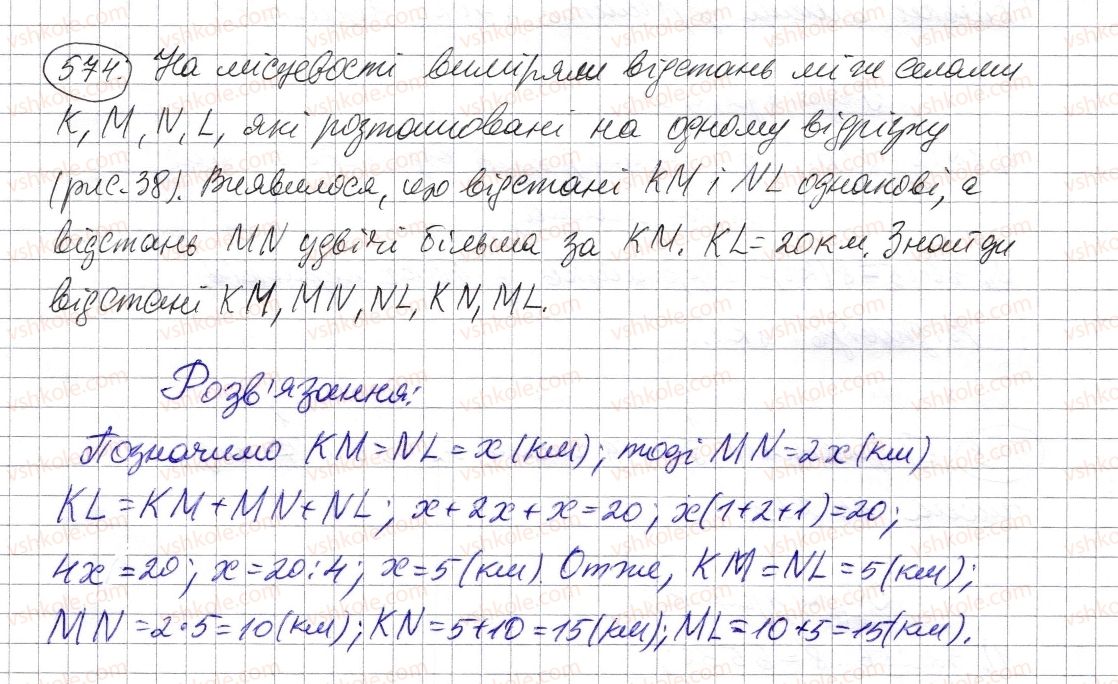 574. На місцевості виміряли відстань між селами
K, M, N, L, які розташовані на одному відрізку
(рис. 38). Виявилося, що відстані KM і NL однакові, а
відстань MN удвічі більша за KM. KL = 20 км. Знайди
відстані KM, MN, NL, KN, ML.
Розв'язання:
Позначимо KM = NL = x (км); тоді MN = 2x (км)
KL = KM + MN + NL; x + 2x + x = 20; x(1+2+1) = 20;
4x = 20; x = 20:4; x = 5 (км) Отже, KM = NL = 5 (км);
MN = 2·5 = 10 (км); KN = 5+10 = 15 (км); ML = 10+5 = 15 (км).